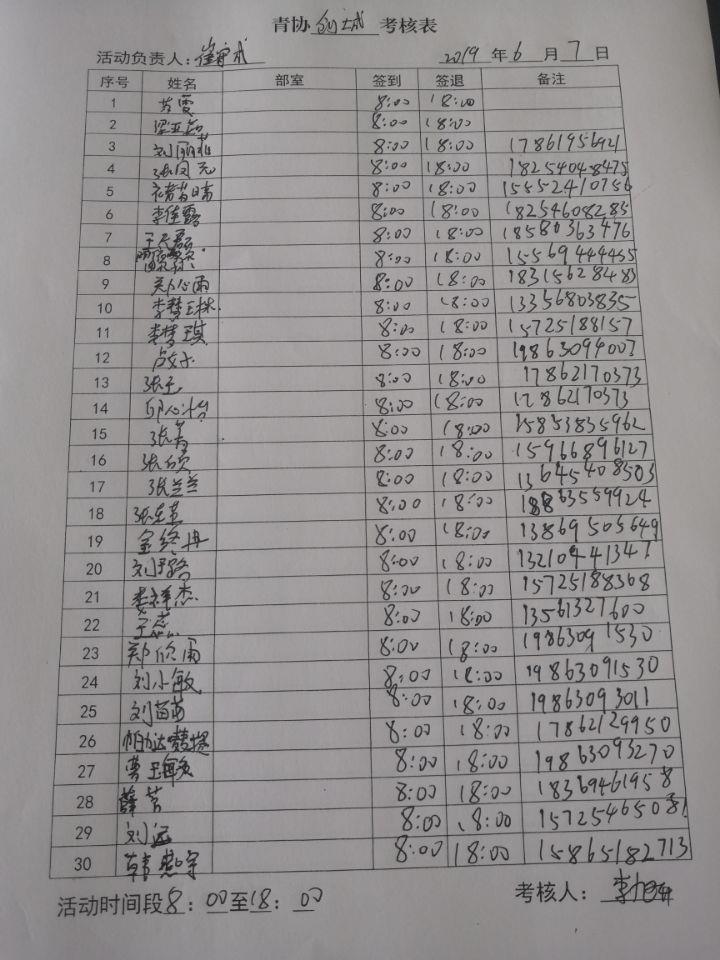 青协 创城 考核表
活动负责人: 2019 年 6 月 7 日
序号 姓名 部室 签到 签退 备注
1 8:00 18:00
2 8:00 18:00
3 刘丽菲 8:00 18:00 17861956921
4 8:00 18:00 18254048475
5 8:00 18:00 15552410756
6 李佳露 8:00 18:00 18254608285
7 8:00 18:00 18580363476
8 8:00 18:00 15569444455
9 郑心雨 8:00 18:00 18315628483
10 李梦琳 8:00 18:00 13356803835
11 李梦琪 8:00 18:00 15725188157
12 8:00 18:00 19863094007
13 8:00 18:00 17862170373
14 邱心怡 8:00 18:00 17862170373
15 张菁 8:00 18:00 15853835962
16 8:00 18:00 15966896127
17 张兰兰 8:00 18:00 13645408503
18 8:00 18:00 18863559924
19 8:00 18:00 13869505649
20 刘璐 8:00 18:00 13210441341
21 李祥杰 8:00 18:00 15725188368
22 8:00 18:00 13561327600
23 郑欣雨 8:00 18:00 19863091530
24 刘小敏 8:00 18:00 19863091530
25 刘苗苗 8:00 18:00 19863093011
26 8:00 18:00 17862129950
27 8:00 18:00 19863093270
28 薛芳 8:00 18:00 18369461958
29 刘远 8:00 18:00 15725465081
30 8:00 18:00 15865182713
活动时间段 8: 00 至 18: 00 考核人: